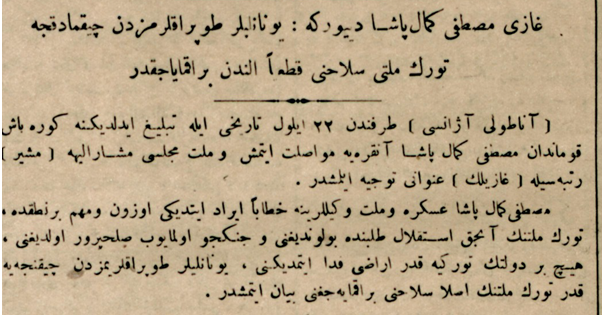 غازی مصطفی كمال پاشا دیيوركه : یونانلیلر طوپراقلرمزدن چیقمادقجه
تورك ملتی سلاحنی قطعاً الندن براقمایاجقدر
( آناطولی آژانسی ) طرفندن ۲۲ ایلول تاریخی ایله تبلیغ ایدلدیكنه كوره باش
قوماندان مصطفی كمال پاشا آنقره‌یه مواصلت ایتمش وملت مجلسی مشارالیهه ( مشیر )
رتبه‌سیله ( غازیلك ) عنوانی توجیه ایلشدر .
مصطفی كمال پاشا عسكره وملت وكیللرینه خطاباً ایراد ایتدیكی اوزون ومهم برنطقده ،
تورك ملتنك آنجق استقلال طلبنده بولوندیغنی و جنكجو اولمایوب صلحپرور اولدیغنی ،
هیچ بر دولتك توركیه قدر اراضی فدا ایتمدیكنی ، یونانلیلر طوپراقلریمزدن چیقنجه‌یه
قدر تورك ملتنك اصلا سلاحنی براقمایه‌جغنی بیان ایتمشدر .